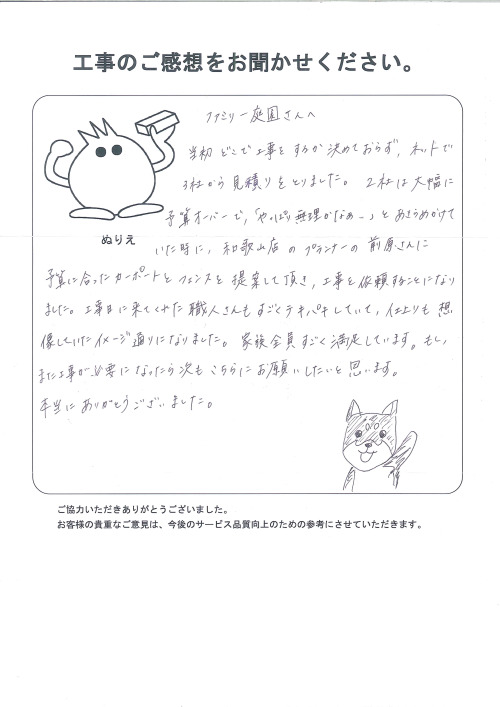 工事のご感想をお聞かせください。
ファミリー庭園さんへ
当初 どこで工事をするか決めておらず、ネットで
3社から見積りをとりました。 2社は大幅に
予算オーバーで、「やっぱり無理かなぁー」とあきらめかけて
いた時に、和歌山店のプランナーの前原さんに
ぬりえ
予算に合ったカーポートとフェンスを提案して頂き、工事を依頼することになり
ました。工事日に来てくれた職人さんもすごくテキパキしていて、仕上りも想
像していたイメージ通りになりました。家族全員すごく満足しています。もし、
また工事が必要になったら次もこちらにお願いしたいと思います。
本当にありがとうございました。
ご協力いただきありがとうございました。
お客様の貴重なご意見は、今後のサービス品質向上のための参考にさせていただきます。